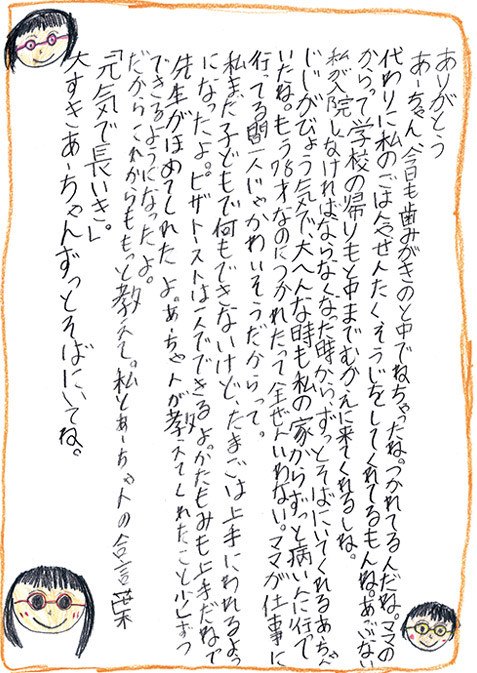 ありがとう
あーちゃん、今日も歯みがきのと中でねちゃったね。つかれてるんだね。ママの
代わりに私のごはんやせんたく、そうじをしてくれてるもんね。あぶない
からって学校の帰りもと中までむかえに来てくれるしね。
私が入院しなければならなくなた時から、ずっとそばにいてくれるあーちゃん
じじがびょう気で大へんな時も私の家からずっと病いんに行って
いたね。もう78才なのにつかれたって全ぜんいわない。ママが仕事に
行ってる間一人じゃかわいそうだからって。
私まだ子どもで何もできないけど、たまごは上手にわれるよう
になったよ。ピザトーストは一人でできるよ。かたもみも上手だねて
先生がほめてくれたよ。あーちゃんが教えてくれたこと少しずつ
できるようになったよ。
だからこれからももっと教えて。私とあーちゃんの合言葉
「元気で長いき。」
大すきあーちゃんずっとそばにいてね。